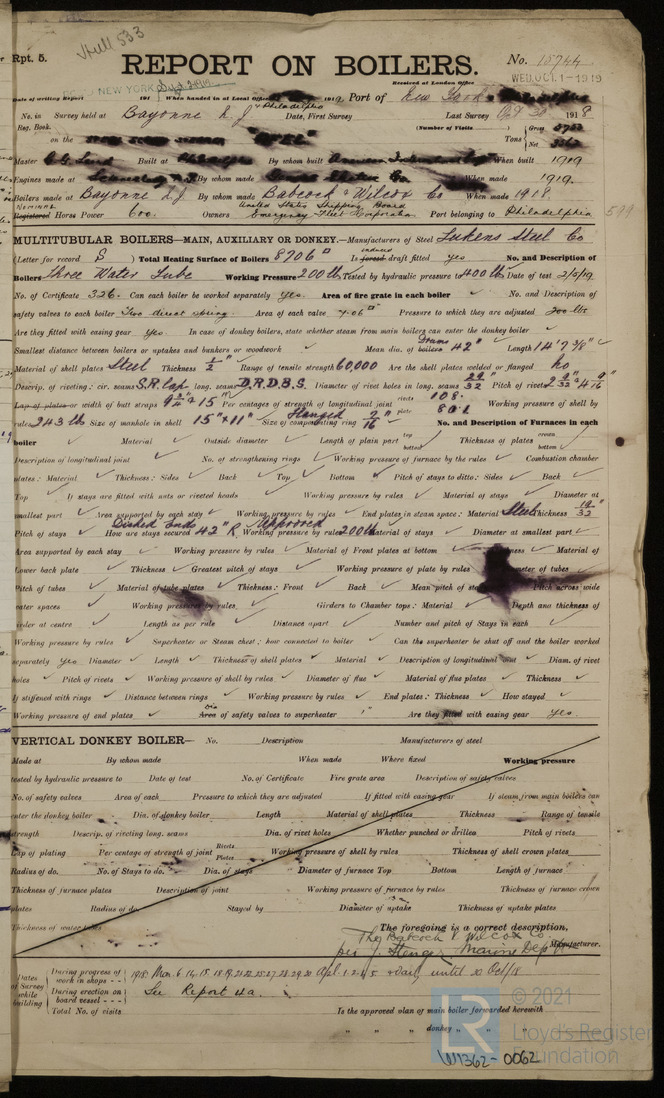 Rpt. 5.
Hull 533
REPORT ON BOILERS.
No. 15744
Received at London Office
WED. OCT. 1-1919
Date of writing Report 191 When handed in at Local Office 1919. Port of New York
No. in Survey held at Bayonne N J & Philadelphia Date, First Survey Last Survey Oct 30 1918
Reg. Book. (Number of Visits
on the Tons Gross Net
Master Built at By whom built When built 1919
Engines made at By whom made When made 1919.
Boilers made at Bayonne N.J. By whom made Babcock & Wilcox Co When made 1918.
Nominal
Registered Horse Power 600. Owners United States Shipping Board Emergency Fleet Corporation Port belonging to Philadelphia
MULTITUBULAR BOILERS—MAIN, AUXILIARY OR DONKEY.—Manufacturers of Steel Lukens Steel Co
(Letter for record S) Total Heating Surface of Boilers 8706 Is forced draft fitted yes No. and Description of
Boilers Three Water Tube Working Pressure 200 lbs Tested by hydraulic pressure to 400 lbs Date of test 2/5/19.
No. of Certificate 326. Can each boiler be worked separately yes. Area of fire grate in each boiler ✓ No. and Description of
safety valves to each boiler Two direct spring. Area of each valve 7.06 Pressure to which they are adjusted 200 lbs
Are they fitted with easing gear yes. In case of donkey boilers, state whether steam from main boilers can enter the donkey boiler ✓
Smallest distance between boilers or uptakes and bunkers or woodwork ✓ Mean dia. of boilers Drums 42" Length 14' 7 7/8" ✓
Material of shell plates Steel Thickness 1/2" Range of tensile strength 60,000 Are the shell plates welded or flanged no
Descrip. of riveting: cir. seams S.R. lap long. seams D.R.D.B.S. Diameter of rivet holes in long. seams Pitch of rivets
Lap of plates or width of butt straps 9 3/4" & 15" Per centages of strength of longitudinal joint rivets 108. plate 80.1 Working pressure of shell by
rules 243 lb Size of manhole in shell 15" x 11" Size of compensating ring Flanged 7/16" No. and Description of Furnaces in each
boiler ✓ Material ✓ Outside diameter ✓ Length of plain part top bottom Thickness of plates crown bottom
Description of longitudinal joint ✓ No. of strengthening rings ✓ Working pressure of furnace by the rules ✓ Combustion chamber
plates: Material ✓ Thickness: Sides ✓ Back ✓ Top ✓ Bottom ✓ Pitch of stays to ditto: Sides ✓ Back ✓
Top ✓ If stays are fitted with nuts or riveted heads ✓ Working pressure by rules ✓ Material of stays ✓ Diameter at
smallest part ✓ Area supported by each stay ✓ Working pressure by rules ✓ End plates in steam space: Material Steel Thickness 19/32"
Pitch of stays ✓ How are stays secured Dished Ends 42" R. Working pressure by rules Approved 200 lb Material of stays ✓ Diameter at smallest part ✓
Area supported by each stay ✓ Working pressure by rules ✓ Material of Front plates at bottom ✓ Material of
Lower back plate ✓ Thickness ✓ Greatest pitch of stays ✓ Working pressure of plate by rules ✓ Diameter of tubes ✓
Pitch of tubes ✓ Material of tube plates ✓ Thickness: Front ✓ Back ✓ Mean pitch of stays Pitch across wide
water spaces ✓ Working pressure by rules ✓ Girders to Chamber tops: Material ✓ Depth and thickness of
girder at centre ✓ Length as per rule ✓ Distance apart ✓ Number and pitch of Stays in each ✓
Working pressure by rules ✓ Superheater or Steam chest: how connected to boiler ✓ Can the superheater be shut off and the boiler worked
separately yes Diameter ✓ Length ✓ Thickness of shell plates ✓ Material ✓ Description of longitudinal joint ✓ Diam. of rivet
holes ✓ Pitch of rivets ✓ Working pressure of shell by rules ✓ Diameter of flue ✓ Material of flue plates ✓ Thickness ✓
If stiffened with rings ✓ Distance between rings ✓ Working pressure by rules ✓ End plates: Thickness ✓ How stayed ✓
Working pressure of end plates ✓ Area of safety valves to superheater Are they fitted with easing gear yes.
VERTICAL DONKEY BOILER— No. Description Manufacturers of steel
Made at By whom made When made Where fixed Working pressure
tested by hydraulic pressure to Date of test No. of Certificate Fire grate area Description of safety valves
No. of safety valves Area of each Pressure to which they are adjusted If fitted with easing gear If steam from main boilers can
enter the donkey boiler Dia. of donkey boiler Length Material of shell plates Thickness Range of tensile
strength Descrip. of riveting long. seams Dia. of rivet holes Whether punched or drilled Pitch of rivets
Lap of plating Per centage of strength of joint Rivets Plates Working pressure of shell by rules Thickness of shell crown plates
Radius of do. No. of Stays to do. Dia. of stays Diameter of furnace Top Bottom Length of furnace
Thickness of furnace plates Description of joint Working pressure of furnace by rules Thickness of furnace crown
plates Radius of do. Stayed by Diameter of uptake Thickness of uptake plates
Thickness of water tubes
The foregoing is a correct description,
The Babcock & Wilcox Co.
per J. Manufacturer.
Marine Dep't
Dates of Survey while building
During progress of work in shops - - 1918 Mar. 6. 14. 15. 18 Apl. 1 & daily until 20 Oct/18
During erection on board vessel - - - See Report 4a.
Total No. of visits
Is the approved plan of main boiler forwarded herewith
" " donkey " " "
LR
© 2021
Lloyd's Register
Foundation
W1362-0062